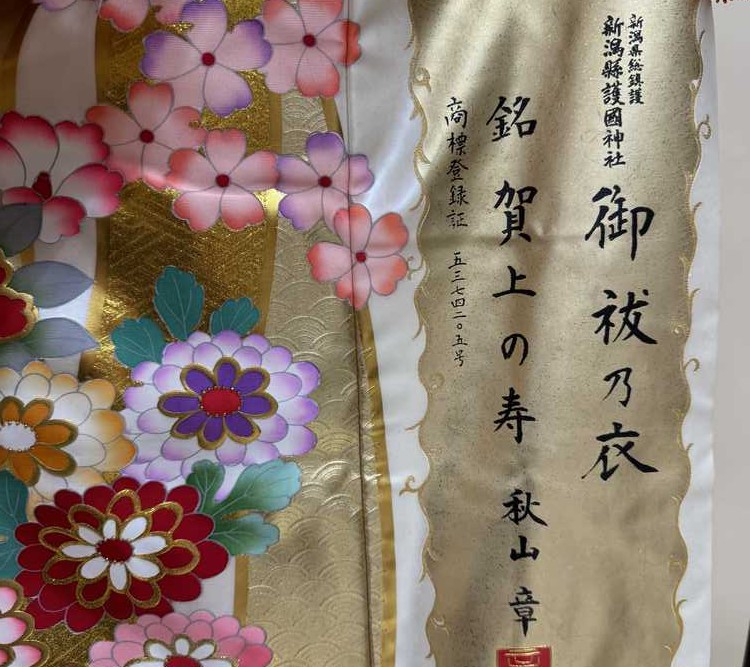 新潟県総鎮護
新潟縣護國神社
御祓乃衣
銘 賀上の寿 秋山 章
商標登録証 五三七四二〇五号